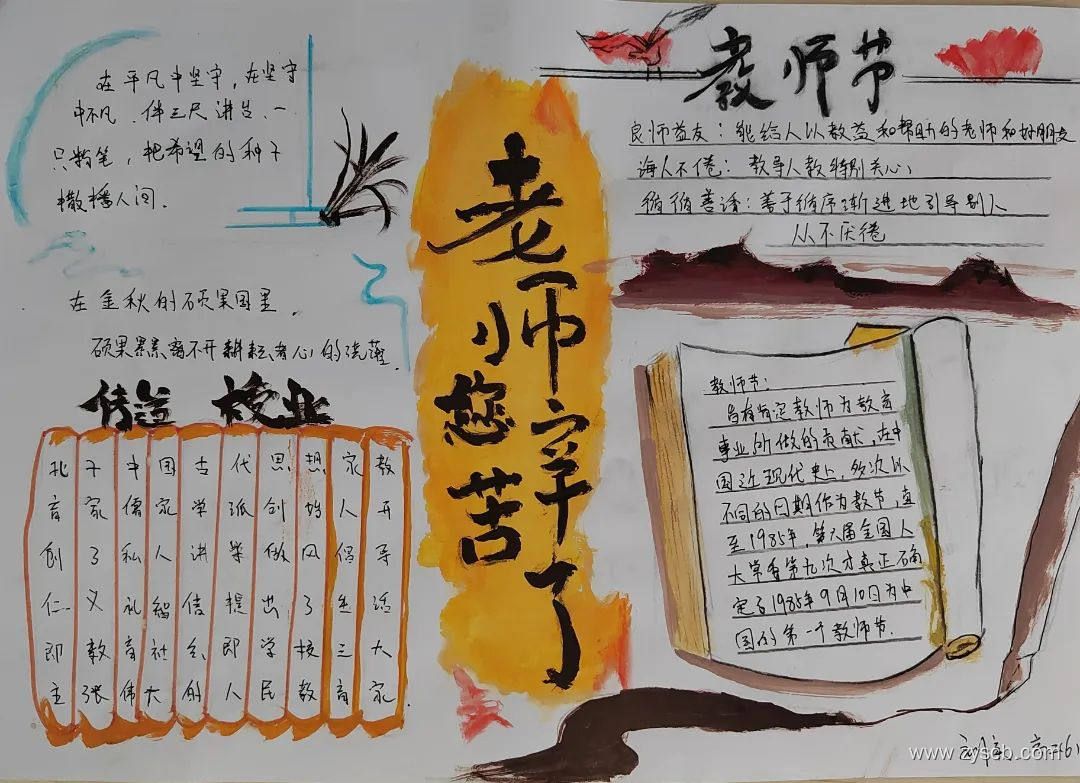 在平凡中坚守，在坚守
中不凡．伴三尺讲台、一
只粉笔，把希望的种子
撒播人间．
在金秋的硕果园里．
硕果累累离不开耕耘者心的浇灌
传道 授业
孔子中国古代思想家教
育家儒家学派创始人开
创了私人讲学做风倡导
仁义礼智信提出了生活
即教育社会即学校三大
主张伟大的人民教育家
老师
您辛苦了
教师节
良师益友：能给人以教益和帮助的老师和好朋友
诲人不倦：教导人教特别关心
循循善诱：善于循序渐进地引导别人
从不厌倦
教师节：
旨在肯定教师为教育
事业所做的贡献，在中
国近现代史上，多次以
不同的日期作为教节，直
至1985年，第六届全国人
大常委第九次才真正确
定了1985年9月10日为中
国的第一个教师节．
www.zyscb.com